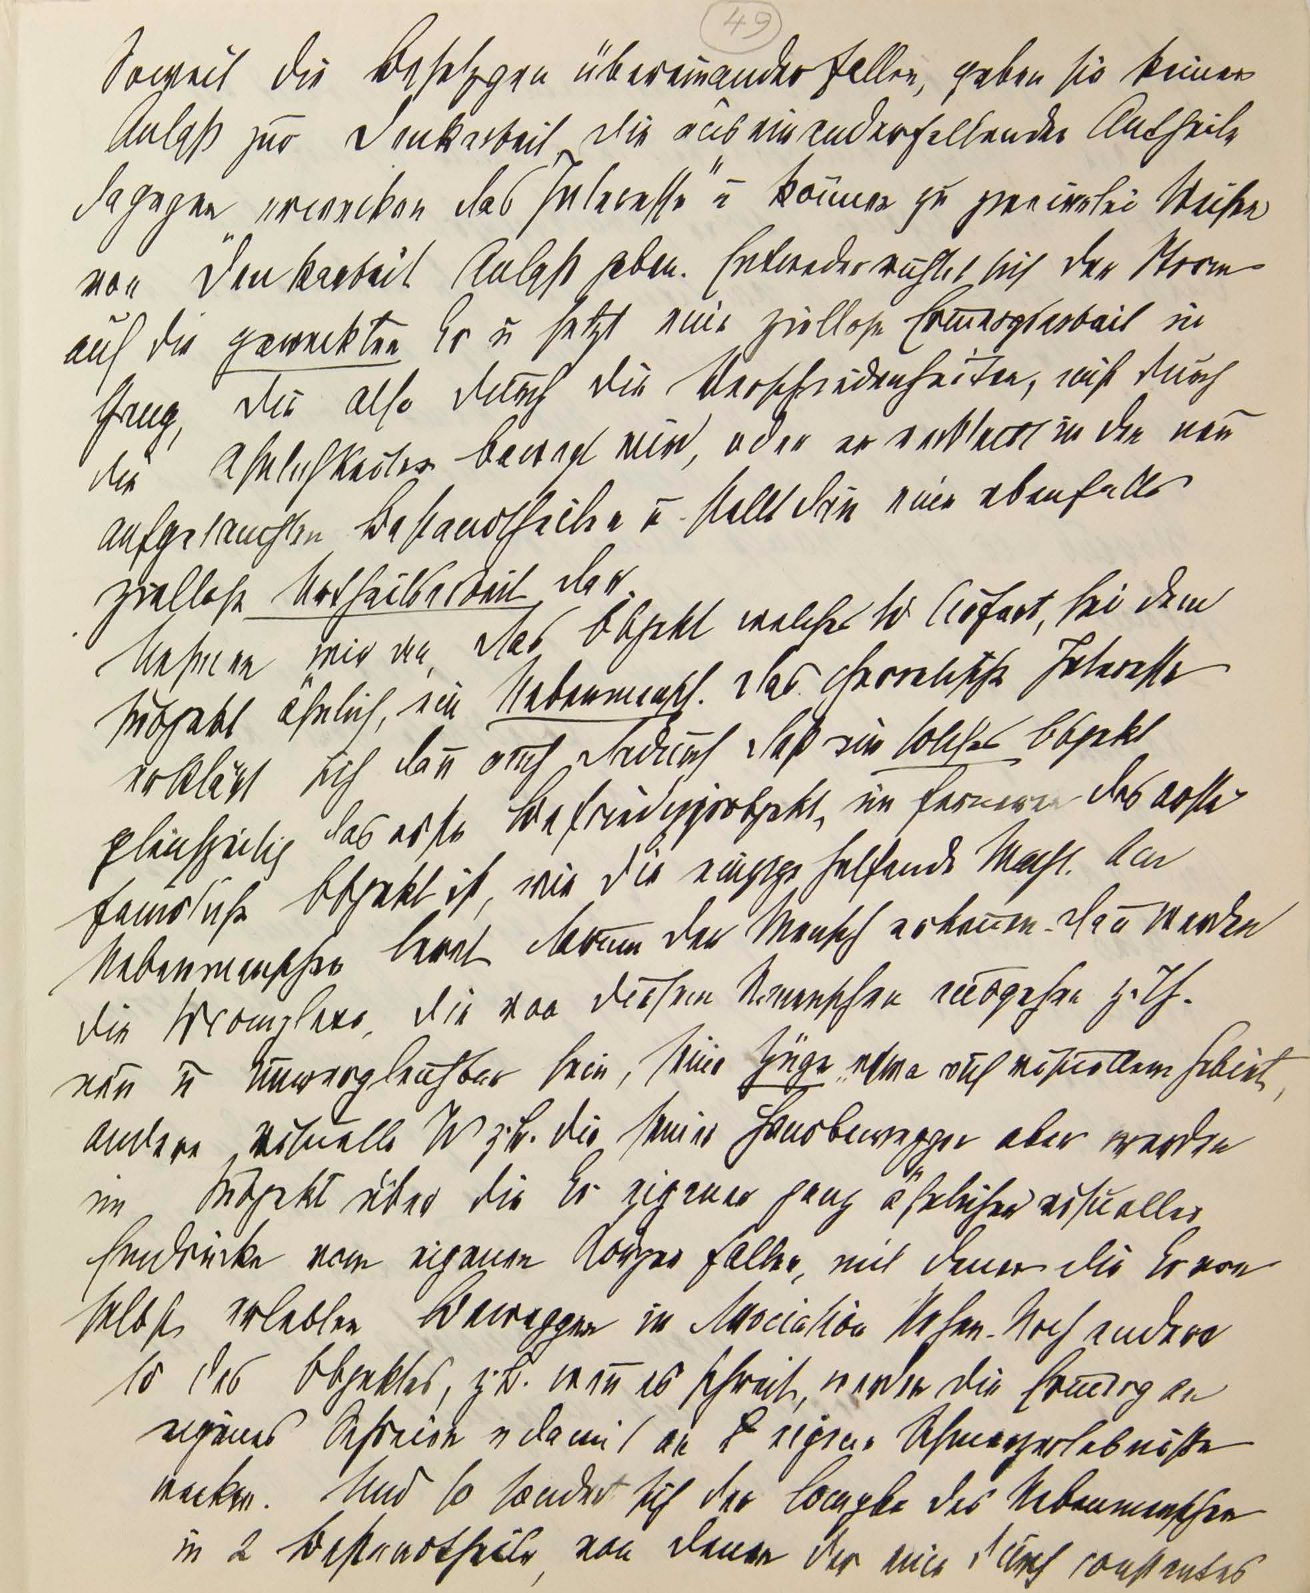 49
Soweit die Besetzgen übereinanderfallen, geben sie keinen
Anlaß zur Denkarbeit, die auseinanderfallenden Antheile
dagegen „erwecken das Interesse“ u können zu zweierlei Weisen
von Denkarbeit Anlaß geben. Entweder richtet sich der Strom
auf die geweckten Er u setzt eine ziellose Erinnergsarbeit in
Gang, die also durch die Verschiedenheiten, nicht durch
die Ähnlichkeiten bewegt wird, oder er verbleibt in den neu
aufgetauchten Bestandtheilen u stellt dann eine ebenfalls
ziellose Urtheilsarbeit dar.
Nehmen wir an, das Objekt welches W liefert, sei dem
Subjekt ähnlich, ein Nebenmensch. Das theoretische Interesse
erklärt sich dann auch dadurch daß ein solches Objekt
gleichzeitig das erste Befriedigsobjekt, im ferneren das erste
feindliche Objekt ist, wie die einzige helfende Macht. Am
Nebenmenschen lernt darum der Mensch erkennen. Dann werden
die Wcomplexe, die von diesem N.menschen ausgehen z. Th.
neu u unvergleichbar sein, seine Züge, etwa auf visuellem Gebiet,
andere visuelle W z.B. die seiner Handbeweggen aber werden
im Subjekt über die Er eigener ganz ähnlicher visueller
Eindrücke vom eigenen Körper fallen, mit denen die Er von
selbst erlebten Beweggen in Association stehen. Noch andere
W des Objektes, z.B. wenn es schreit, werden die Erinnerg an
eigenes Schreien u damit an eigene Schmerzerlebnisse
wecken. Und so sondert sich der Complex des Nebenmenschen
in 2 Bestandtheile, von denen der eine durch constantes